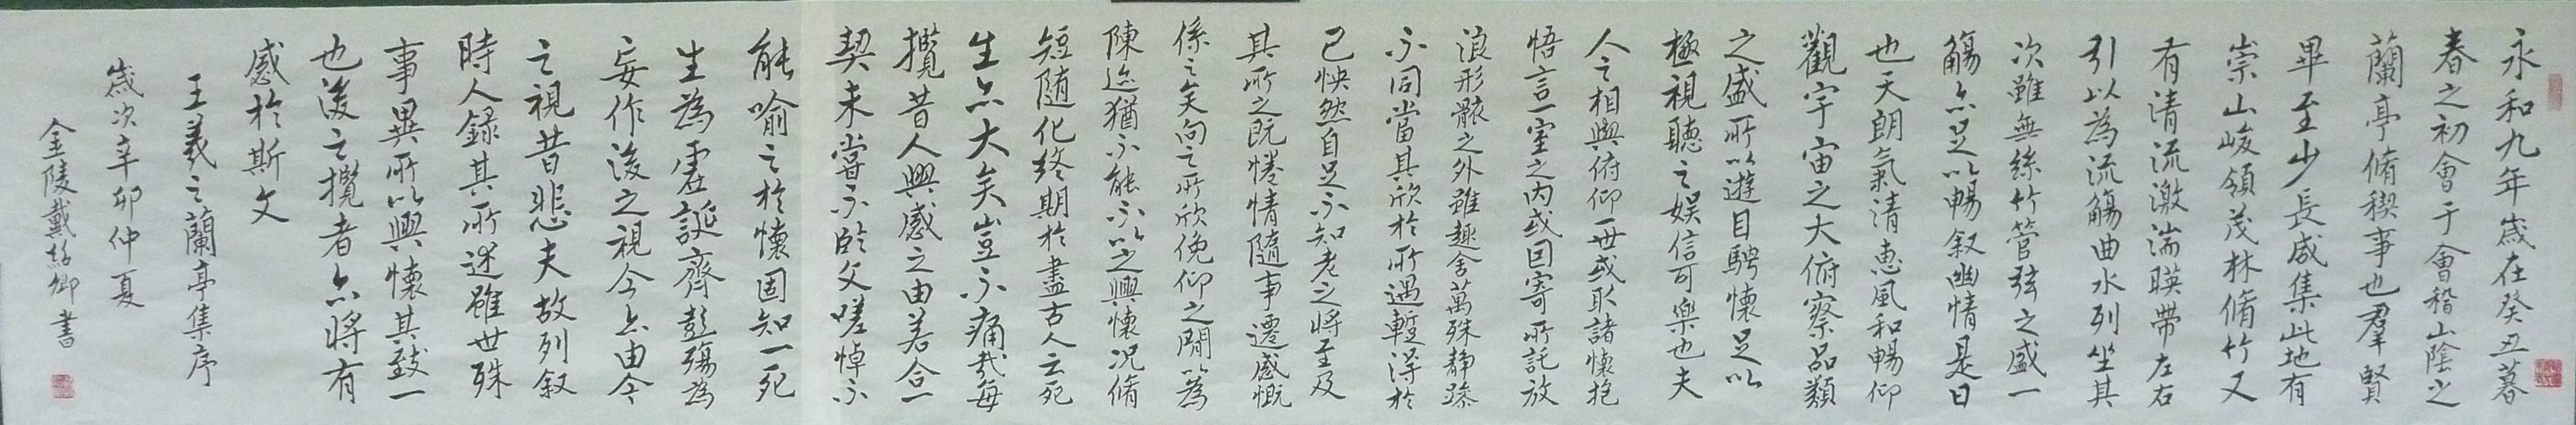 永和九年歲在癸丑暮
春之初會于會稽山陰之
蘭亭脩稧事也羣賢
畢至少長咸集此地有
崇山峻領茂林脩竹又
有清流激湍暎帶左右
引以為流觴曲水列坐其
次雖無絲竹管弦之盛一
觴亦足以暢叙幽情是日
也天朗氣清惠風和暢仰
觀宇宙之大俯察品類
之盛所以遊目騁懷足以
極視聽之娛信可樂也夫
人之相與俯仰一世或取諸懷抱
悟言一室之内或因寄所託放
浪形骸之外雖趣舍萬殊靜躁
不同當其欣於所遇暫得於
已怏然自足不知老之將至及
其所之既惓情隨事遷感慨
係之矣向之所欣俛仰之閒以為
陳迹猶不能不以之興懷況脩
短隨化終期於盡古人云死
生亦大矣豈不痛哉每
攬昔人興感之由若合一
契未嘗不臨文嗟悼不
能喻之於懷固知一死
生為虛誕齊彭殤為
妄作後之視今亦由今
之視昔悲夫故列叙
時人錄其所述雖世殊
事異所以興懷其致一
也後之攬者亦將有
感於斯文
王羲之蘭亭集序
歲次辛卯仲夏
金陵戴書